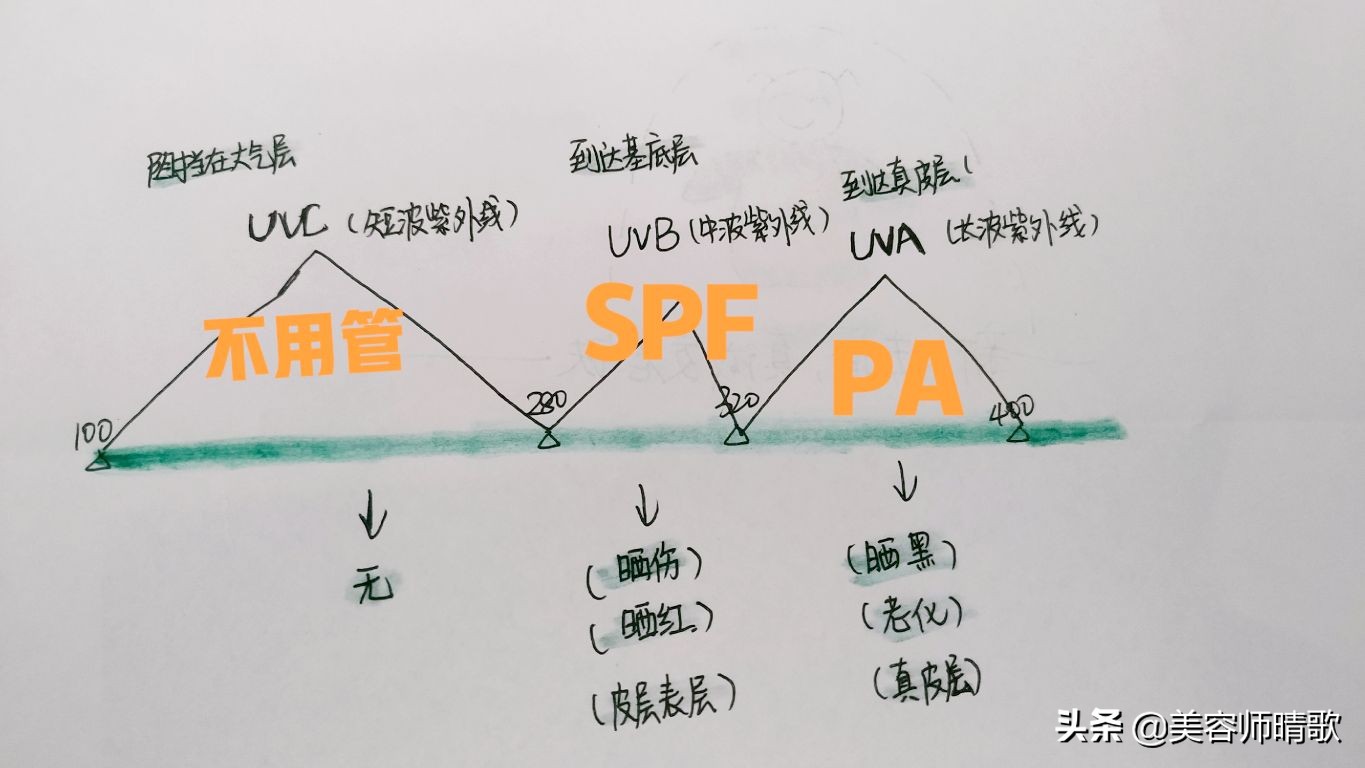 阻挡在大气层
UVC (短波紫外线)
不用管
到达基底层
UVB (中波紫外线)
SPF
到达真皮层(
UVA (长波紫外线)
PA
100
280
320
400
无
(晒伤)
(晒红)
(皮层表层)
(晒黑)
(老化)
(真皮层)
头条 @美容师晴歌